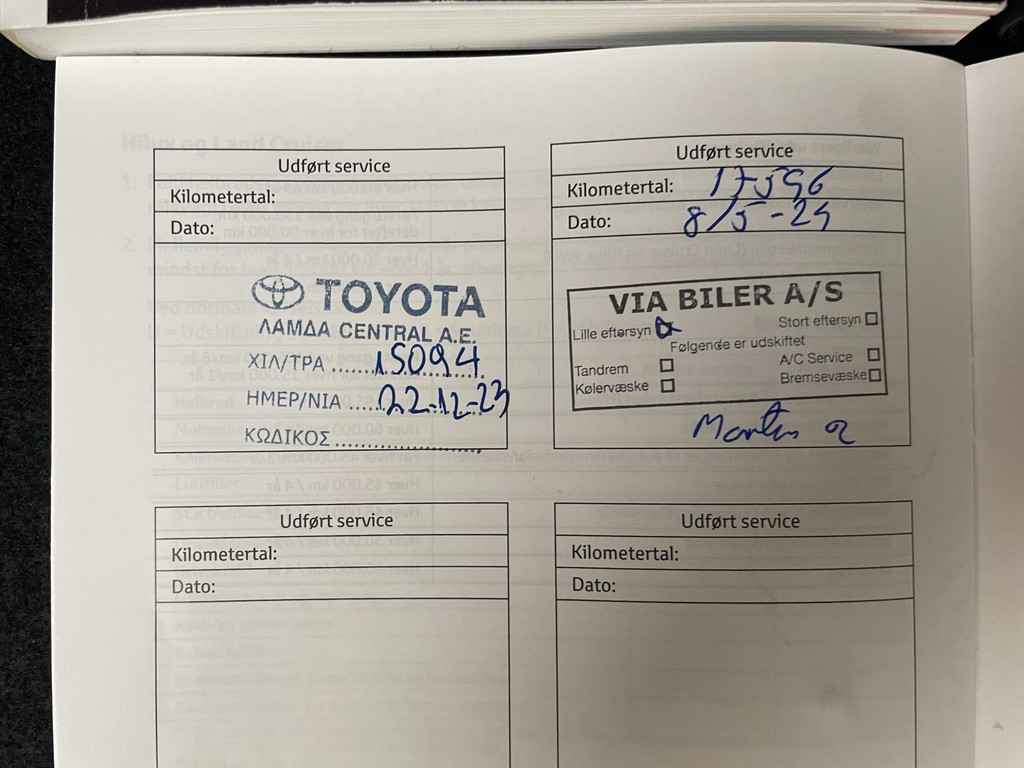 Udført service
Kilometertal:
Dato:
TOYOTA
ΛΑΜΔΑ CENTRAL A.E.
ΧΙΛ/ΤΡΑ ......15094......
ΗΜΕΡ/ΝΙΑ ....22-12-23
ΚΩΔΙΚΟΣ ........................
Udført service
Kilometertal: 17596
Dato: 8/5-24
VIA BILER A/S
Lille eftersyn Stort eftersyn
Følgende er udskiftet
Tandrem A/C Service
Kølervæske Bremsevæske
Udført service
Kilometertal:
Dato:
Udført service
Kilometertal:
Dato: